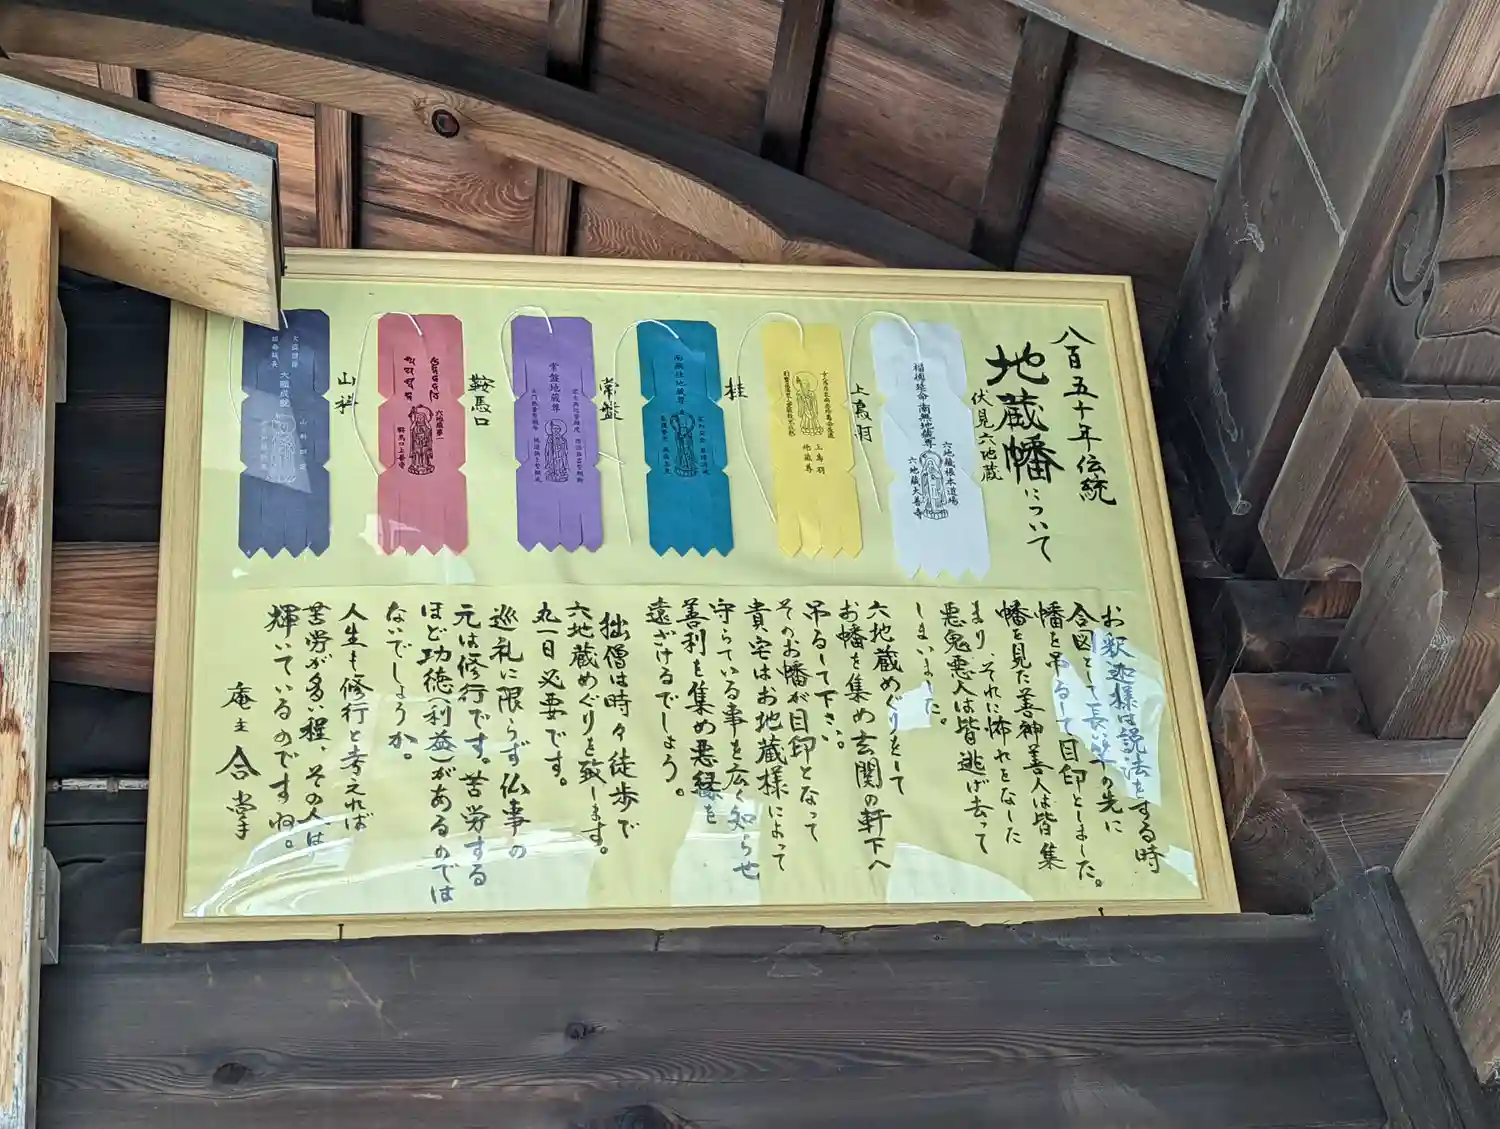 八百五十年伝統
地蔵幡について
伏見六地蔵
福徳延命 南無地蔵尊
六地蔵根本道場
六地蔵大善寺
上鳥羽
上鳥羽
地蔵尊
桂
常盤
常盤地蔵尊
鞍馬口
六地蔵第一
鞍馬口上善寺
山科
山科四宮
お釈迦様は説法をする時
合図として長い竿の先に
幡を吊るして目印としました。
幡を見た善神善人は皆集
まり、それに怖れをなした
悪鬼悪人は皆逃げ去って
しまいました。
六地蔵めぐりをして
お幡を集め玄関の軒下へ
吊るして下さい。
そのお幡が目印となって
貴宅はお地蔵様によって
守らている事を広く知らせ
善利を集め悪縁を
遠ざけるでしょう。
拙僧は時々徒歩で
六地蔵めぐりを致します。
丸一日必要です。
巡礼に限らず仏事の
元は修行です。苦労する
ほど功徳(利益)があるのでは
ないでしょうか。
人生も修行と考えれば
苦労が多い程、その人は
輝いているのですね。
庵主 合掌